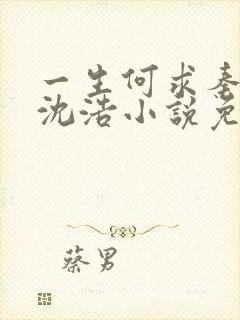 一生何求
沈浩小說免
蔡男